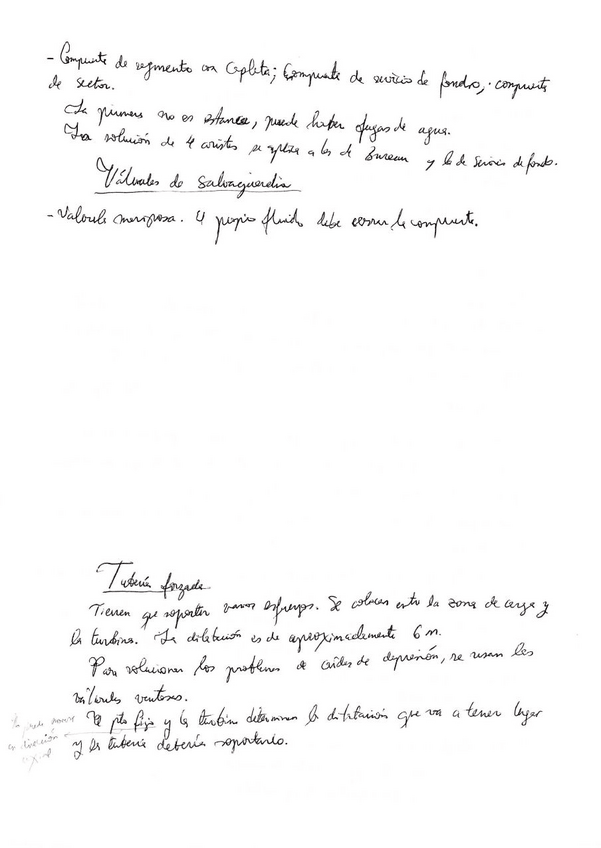 - Compuerta de segmento con clapeta; Compuerta de servicio de fondo; compuerta
de sector.
La primera no es estanca, puede haber fugas de agua.
La solución de 4 aristas se aplica a las de Bureau y la de servicio de fondo.
Válvulas de salvaguardia
- Válvula mariposa. El propio fluido debe cerrar la compuerta.
Tubería forzada
Tienen que soportar varios esfuerzos. Se colocan entre la zona de carga y
la turbina. La dilatación es de aproximadamente 6 m.
Para solucionar los problemas de ondas de depresión, se usan las
válvulas ventosas.
no puede mover
en dirección
axial
El pto fijo y la turbina determinan la dilatación que va a tener lugar
y la tubería debería soportarlo.